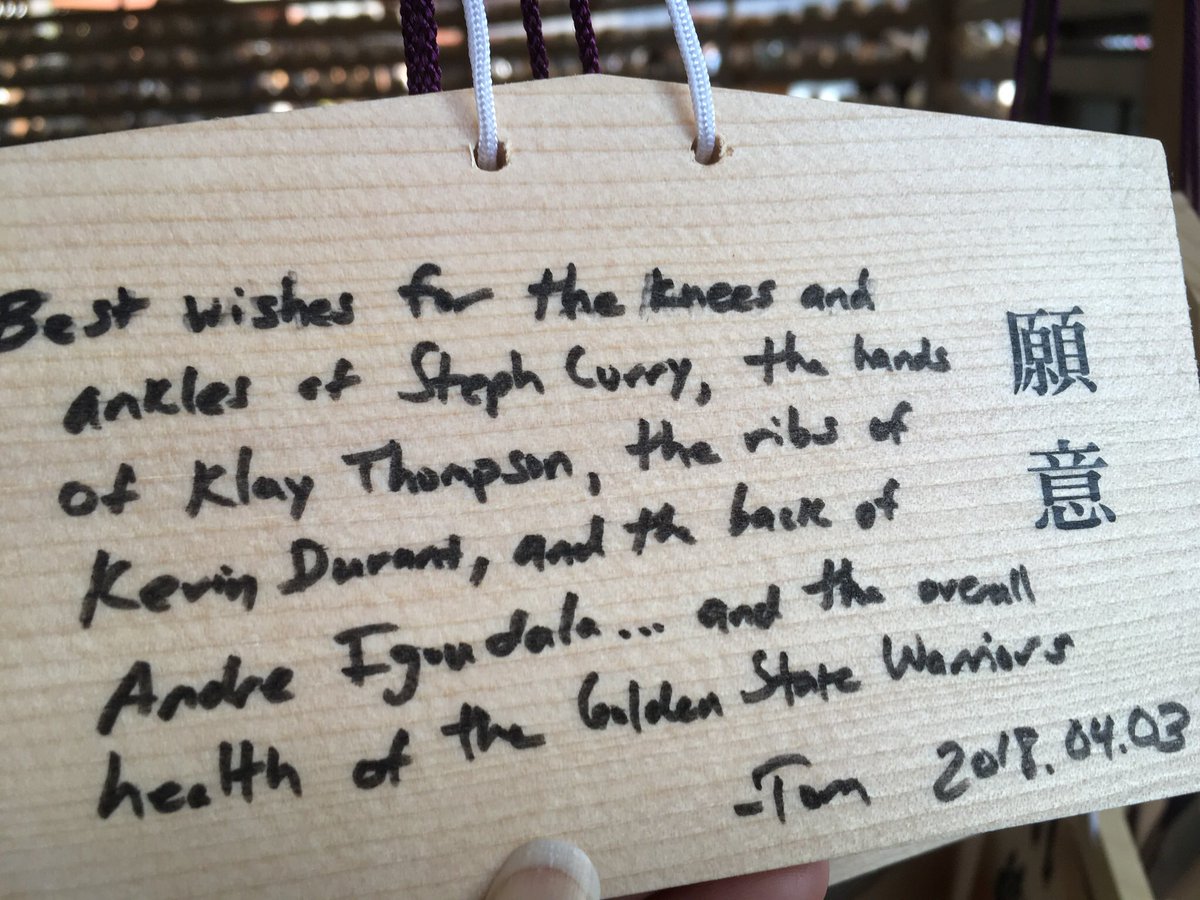 Best wishes for the knees and
ankles of Steph Curry, the hands
of Klay Thompson, the ribs of
Kevin Durant, and the back of
Andre Igoudala... and the overall
health of the Golden State Warriors
-Tom 2018.04.03
願意